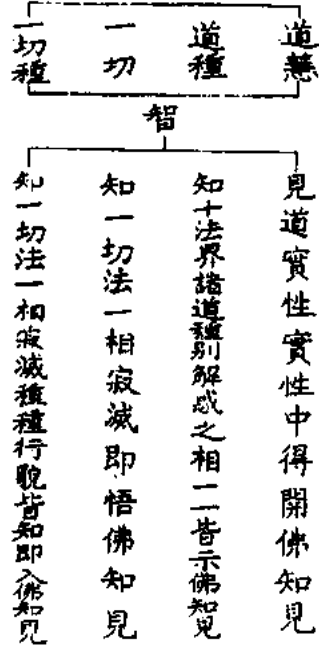 道慧
道種
一切
一切種
智
見道實性實性中得開佛知見
知十法界諸道種別解惑之相一一皆示佛知見
知一切法一相寂滅即悟佛知見
知一切法一相寂滅種種行貌皆知即入佛知見